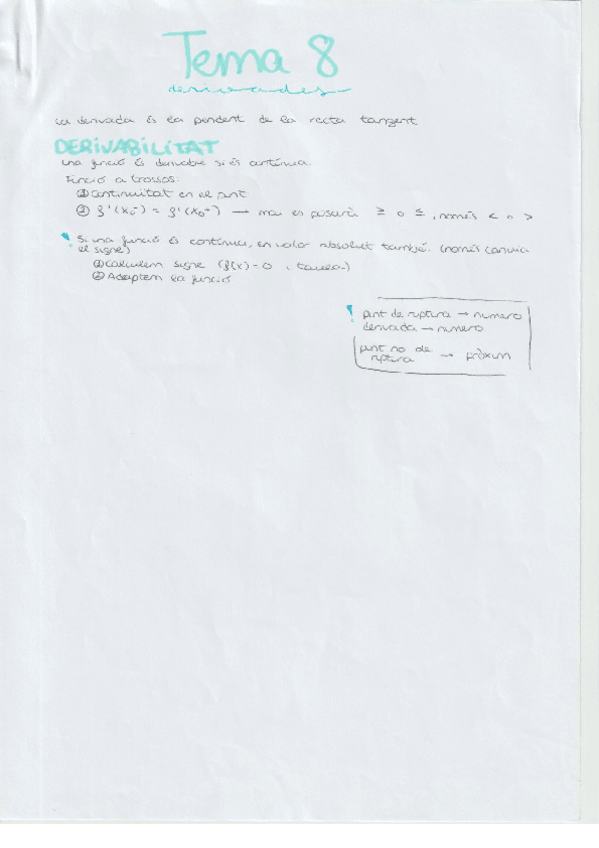 Tema 8
derivades
La derivada és la pendent de la recta tangent
DERIVABILITAT
Una funció és derivable si és contínua.
Funció a trossos:
① Continuitat en el punt
② f'(x₀⁻) = f'(x₀⁺) → mai es posarà ≥ o ≤, només < o >
! Si una funció és contínua, en valor absolut també. (només canvia
el signe)
① Calculem signe (f(x)=0, taula)
② Adaptem la funció
! punt de ruptura → numero
derivada → numero
punt no de
ruptura → pròxim